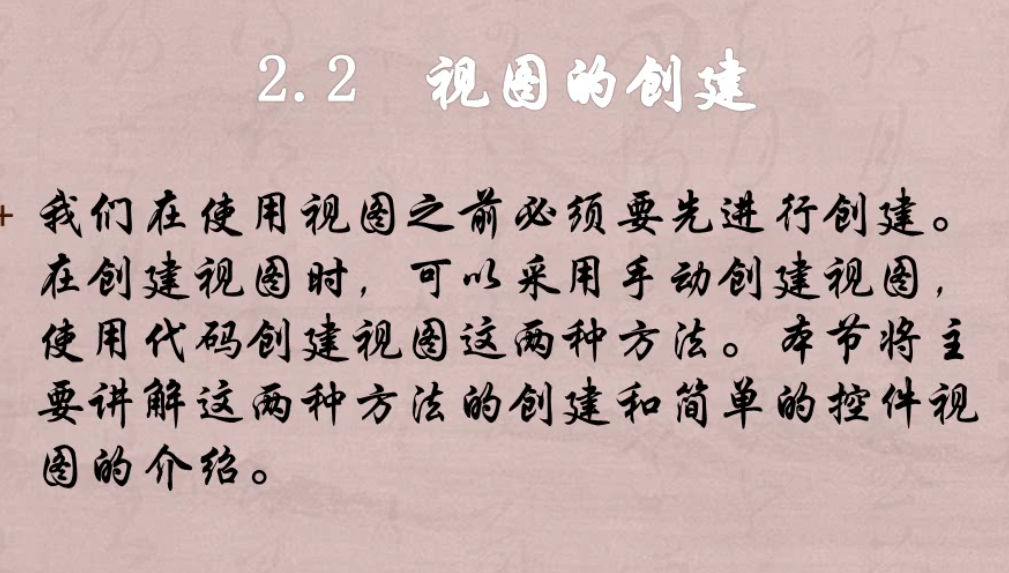 2.2 视图的创建
我们在使用视图之前必须要先进行创建。
在创建视图时，可以采用手动创建视图，
使用代码创建视图这两种方法。本节将主
要讲解这两种方法的创建和简单的控件视
图的介绍。